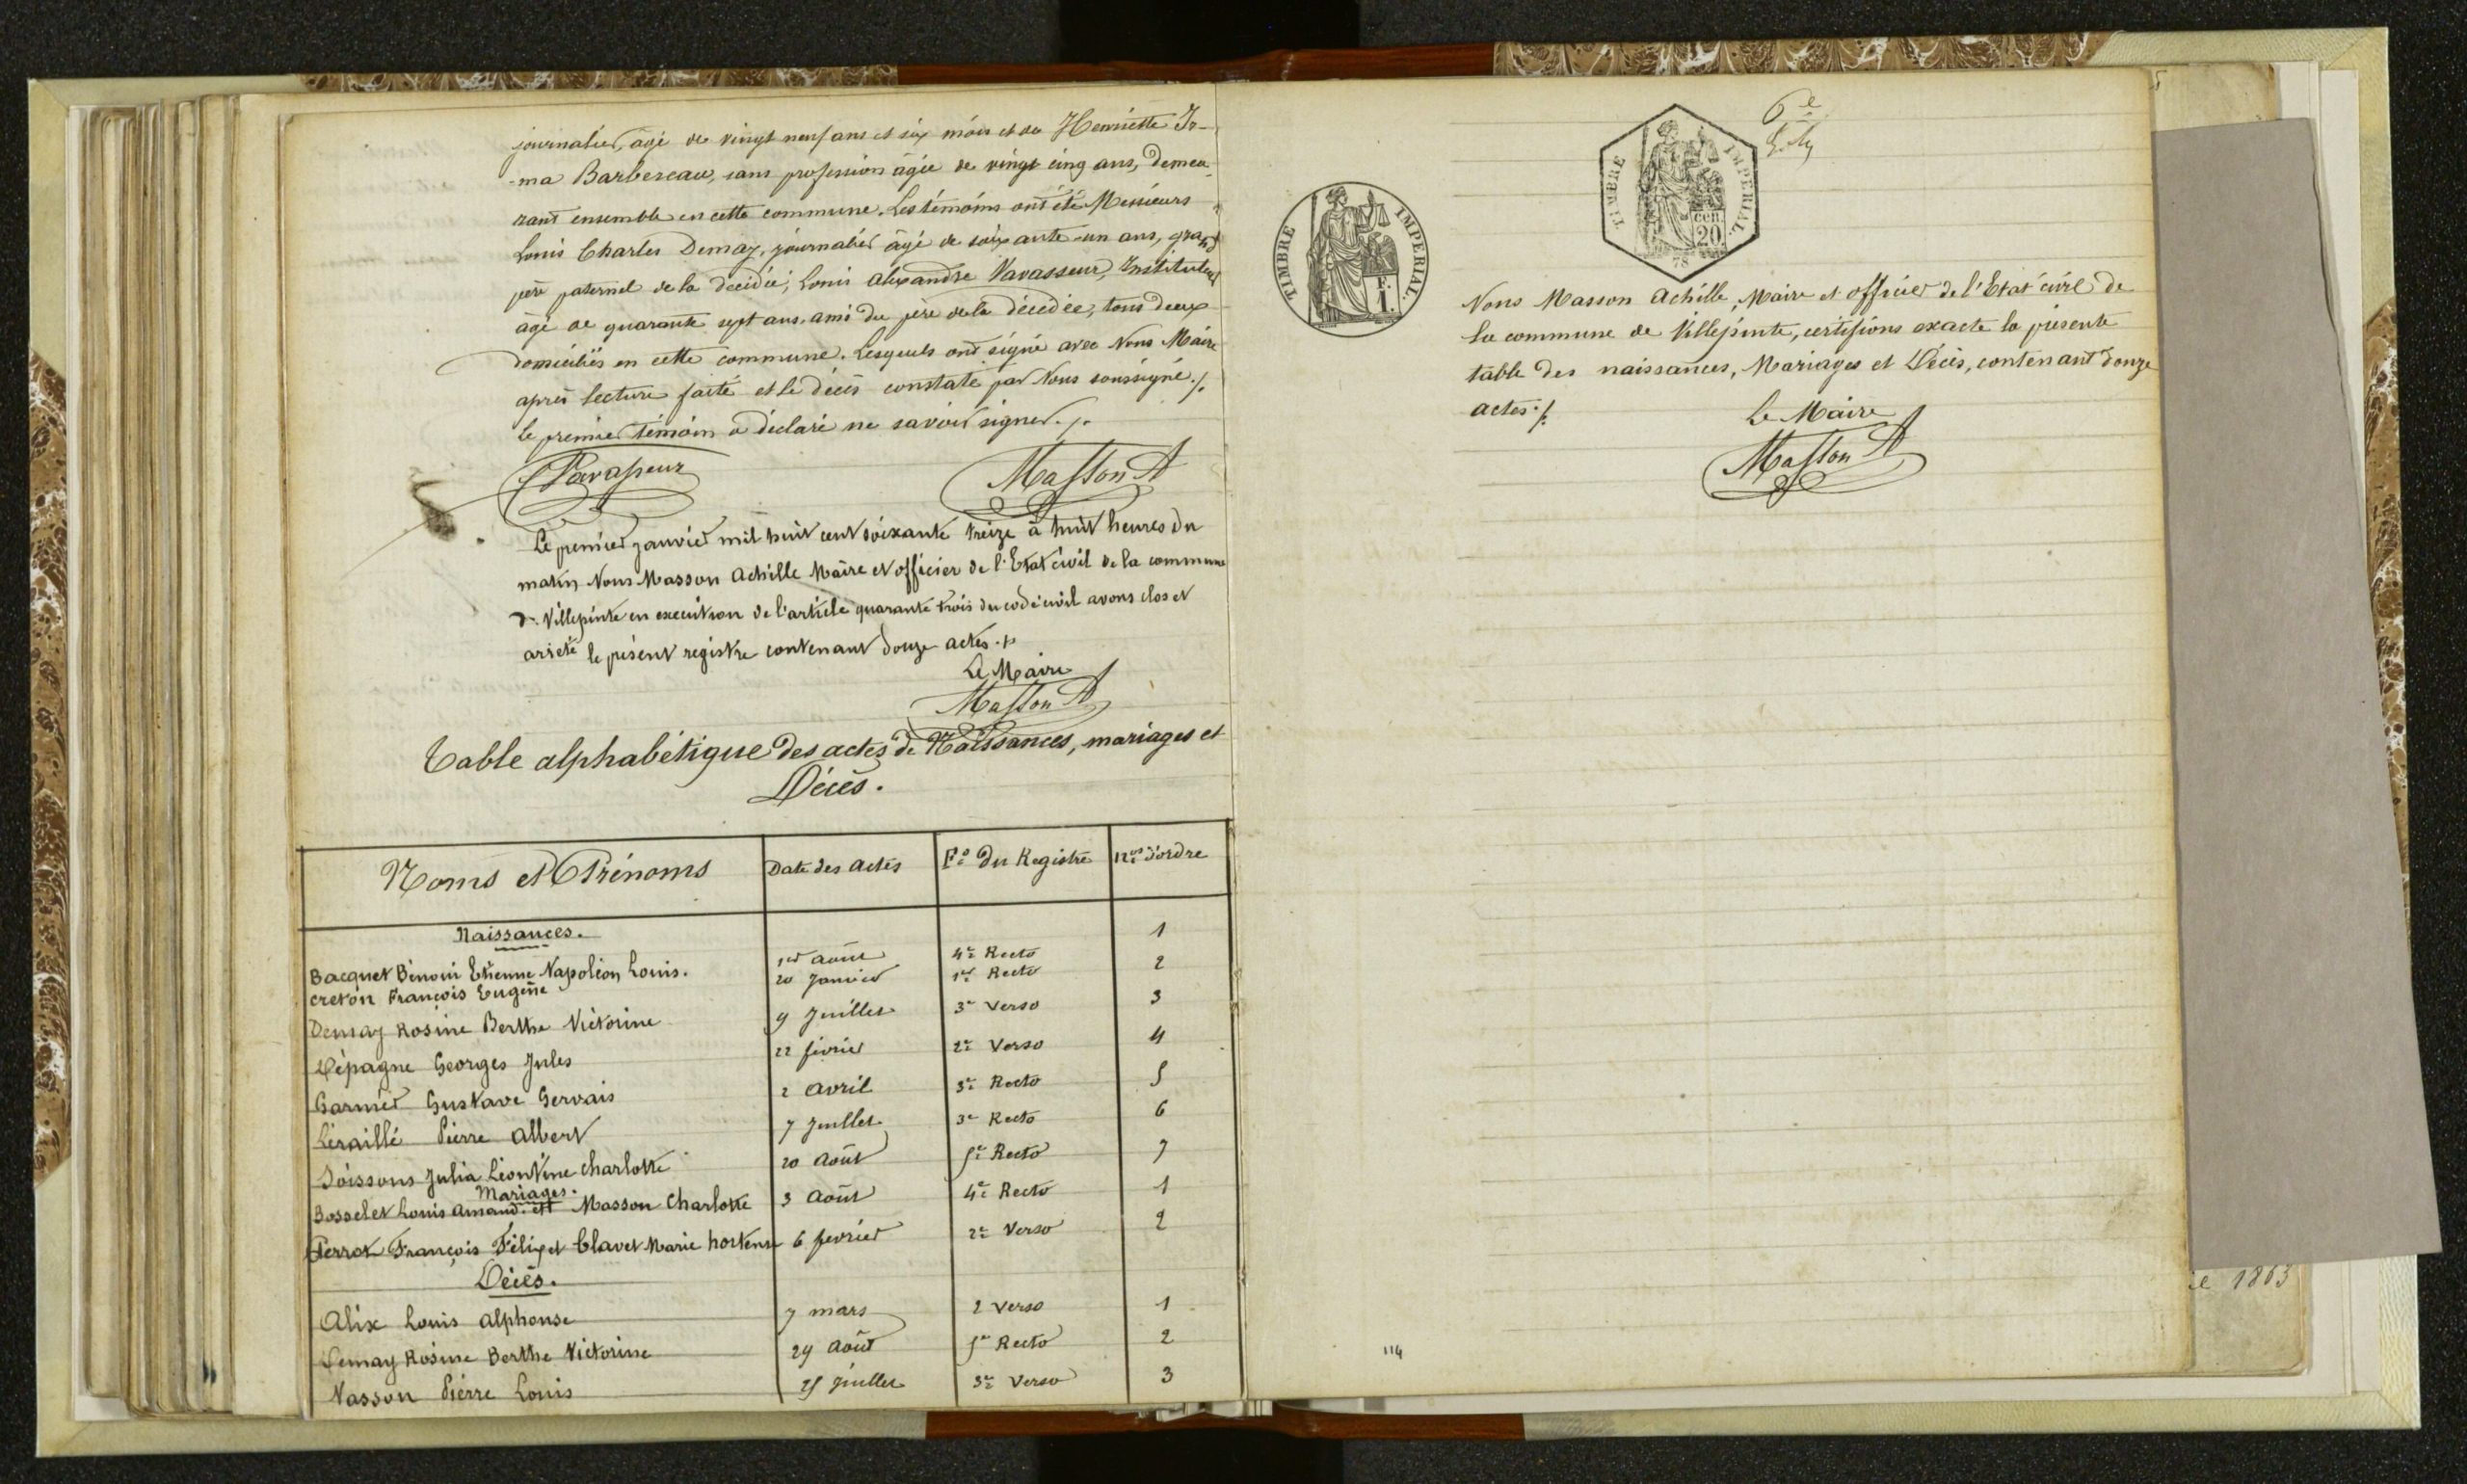 journalier, âgé de vingt neuf ans et six mois et de Henriette Ir-
-ma Barbereau, sans profession âgée de vingt cinq ans, demeu-
rant ensemble en cette commune. Les témoins ont été Messieurs
Louis Charles Demay, journalier âgé de soixante-un ans, grand
père paternel de la décédée; Louis Alexandre Vavasseur, Instituteur
âgé de quarante sept ans, ami du père de la décédée, tous deux
domiciliés en cette commune. Lesquels ont signé avec Nous Maire
après lecture faite et le décès constaté par Nous soussigné ./.
le premier témoin a déclaré ne savoir signer ./.
Vavasseur Masson A
Le premier janvier mil huit cent soixante treize à huit heures du
matin Nous Masson Achille Maire et officier de l'Etat civil de la commune
de Villepinte en execution de l'article quarante trois du code civil avons clos et
arreté le présent registre contenant douze actes ./.
Le Maire
Masson A
Table alphabétique des actes de Naissances, mariages et
Décès.
Noms et Prénoms Date des Actes F.º du Registre N.ºs d'ordre
Naissances.
Bacquet Benoni Etienne Napoléon Louis. 1er Août 4e Recto 1
Creton François Eugène 20 Janvier 1er Recto 2
Demay Rosine Berthe Victorine 9 Juillet 3e Verso 3
Dépagne Georges Jules 22 février 2e Verso 4
Garnier Gustave Gervais 2 Avril 3e Recto 5
Léraillé Pierre Albert 7 Juillet 3e Recto 6
Soissons Julia Léontine Charlotte 20 Août 5e Recto 7
Mariages.
Bosselet Louis Amand et Masson Charlotte 3 Août 4e Recto 1
Perrot François Félix et Clavet Marie hortense 6 fevrier 2e Verso 2
Décès.
Alix Louis Alphonse 7 mars 2 Verso 1
Demay Rosine Berthe Victorine 29 Août 5e Recto 2
Masson Pierre Louis 25 Juillet 3e Verso 3
6e
TIMBRE IMPERIAL.
cen.
20
78
TIMBRE IMPERIAL.
F.
1.
Nous Masson Achille, Maire et officier de l'Etat civil de
la commune de Villepinte, certifions exacte la présente
table des naissances, Mariages et Décès, contenant douze
actes ./.
Le Maire
Masson A
114
1863